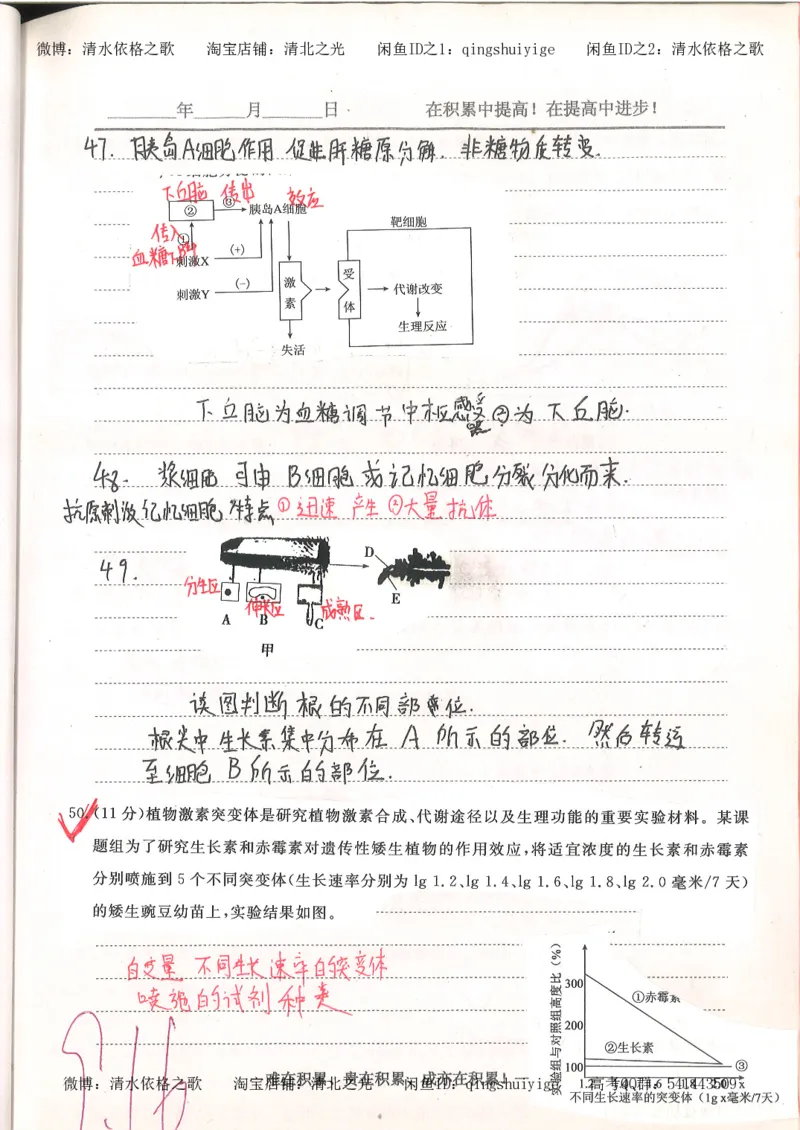 微博：清水依格之歌 淘宝店铺：清北之光 闲鱼ID之1：qingshuiyige 闲鱼ID之2：清水依格之歌
年 月 日 在积累中提高！在提高中进步！
47. 胰岛A细胞作用 促进肝糖原分解．非糖物质转变．
下丘脑 传出 效应
② ③ 胰岛A细胞
靶细胞
传入 ①
血糖
刺激X (+)
刺激Y (-)
激素
受体
代谢改变
生理反应
失活
下丘脑为血糖调节中枢感受器 ②为下丘脑．
48. 浆细胞 可由 B细胞 或记忆细胞分裂分化而来．
抗原刺激记忆细胞 特点 ①迅速 产生 ②大量抗体
49.
D
E
分生区 伸长区 成熟区．
A B C
甲
读图判断 根的不同部位．
根尖中生长素集中分布在 A 所示的部位．然后转运
至细胞 B所示的部位．
50.(11分)植物激素突变体是研究植物激素合成、代谢途径以及生理功能的重要实验材料。某课
题组为了研究生长素和赤霉素对遗传性矮生植物的作用效应,将适宜浓度的生长素和赤霉素
分别喷施到5个不同突变体(生长速率分别为lg 1.2、lg 1.4、lg 1.6、lg 1.8、lg 2.0毫米/7天)
的矮生豌豆幼苗上,实验结果如图。
自变量 不同生长速率的突变体
喷施的试剂种类
实验组与对照组高度比（%）
300
200
100
①赤霉素
②生长素
③
不同生长速率的突变体（lg x毫米/7天）
难在积累！贵在积累！成亦在积累！
微博：清水依格之歌 淘宝店铺：清北之光 闲鱼ID：qingshuiyige